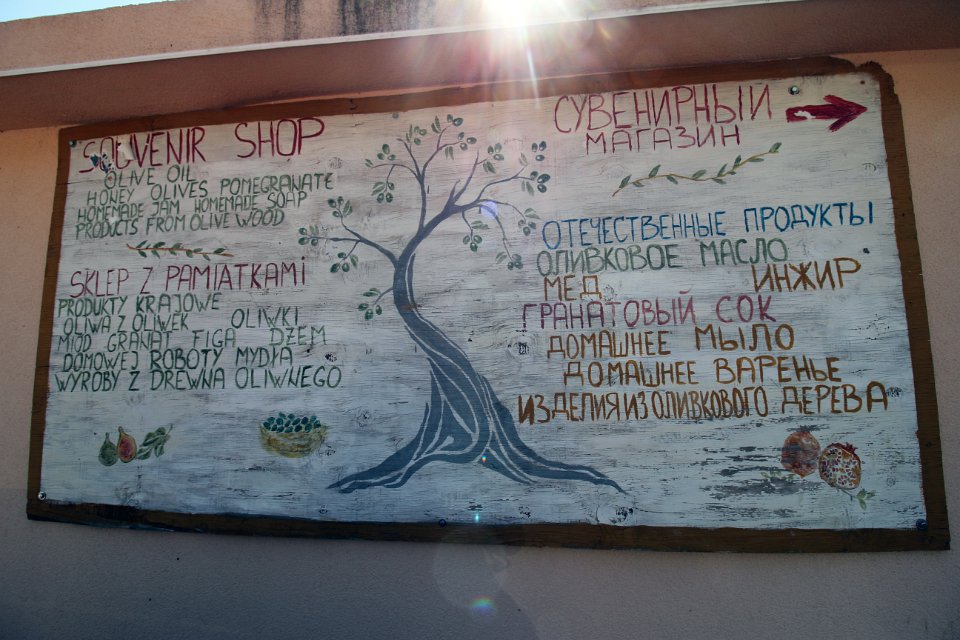 SOUVENIR SHOP
OLIVE OIL
HONEY OLIVES POMEGRANATE
HOMEMADE JAM HOMEMADE SOAP
PRODUCTS FROM OLIVE WOOD
SKLEP Z PAMIATKAMI
PRODUKTY KRAJOWE
OLIWA Z OLIWEK OLIWKI
MIÓD GRANAT FIGA DŻEM
DOMOWEJ ROBOTY MYDŁA
WYROBY Z DREWNA OLIWNEGO
СУВЕНИРНЫЙ
МАГАЗИН
ОТЕЧЕСТВЕННЫЕ ПРОДУКТЫ
ОЛИВКОВОЕ МАСЛО
МЕД ИНЖИР
ГРАНАТОВЫЙ СОК
ДОМАШНЕЕ МЫЛО
ДОМАШНЕЕ ВАРЕНЬЕ
ИЗДЕЛИЯ ИЗ ОЛИВКОВОГО ДЕРЕВА